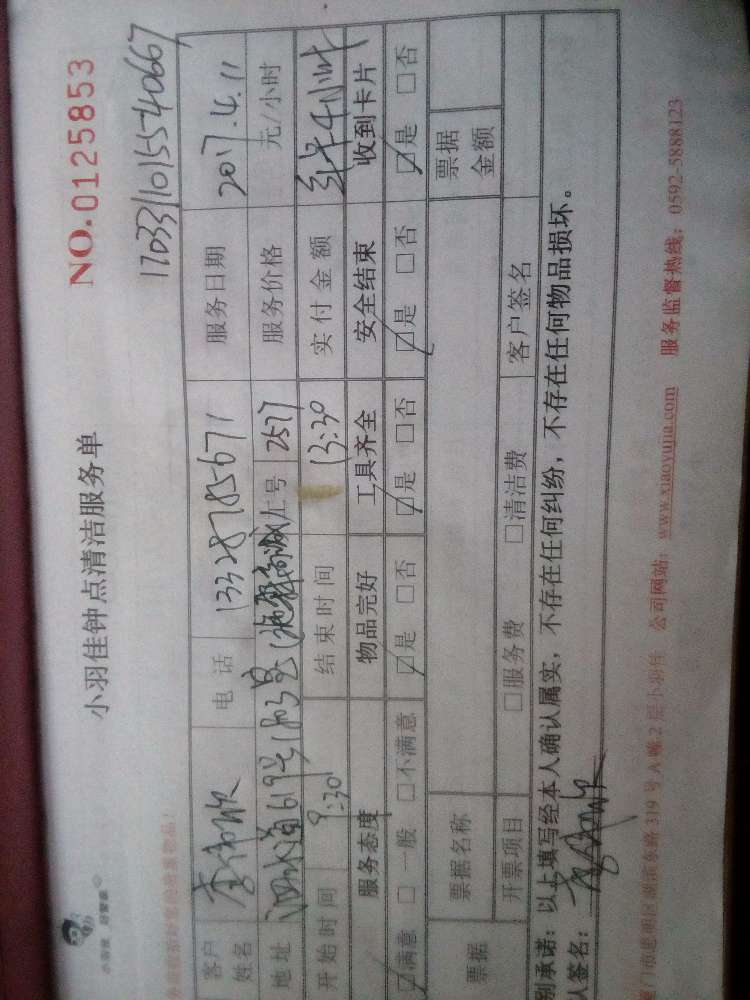 小羽佳 好管家
小羽佳钟点清洁服务单
NO.0125853
17033110155540667
客户姓名 电话 13328785671 服务日期 2017.4.11
地址 619号1803室 工号 2577 服务价格 元/小时
开始时间 9:30 结束时间 13:30 实付金额 4小时
服务态度 物品完好 工具齐全 安全结束 收到卡片
☑满意 □一般 □不满意 ☑是 □否 ☑是 □否 ☑是 □否 ☑是 □否
票据 票据名称 票据金额
开票项目 □服务费 □清洁费 客户签名
别承诺：以上填写经本人确认属实，不存在任何纠纷，不存在任何物品损坏。
人签名：
厦门市思明区湖滨东路319号A幢2层小羽佳 公司网站：www.xiaoyujia.com 服务监督热线：0592-5888123